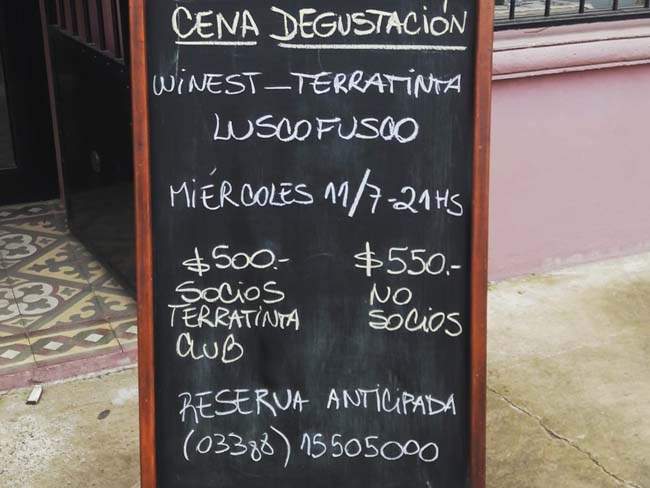 CENA DEGUSTACIÓN
WINEST - TERRATINTA
LUSCOFUSCO
MIÉRCOLES 11/7-21HS
$500.- $550.-
SOCIOS NO
TERRATINTA SOCIOS
CLUB
RESERVA ANTICIPADA
(03388) 15505000